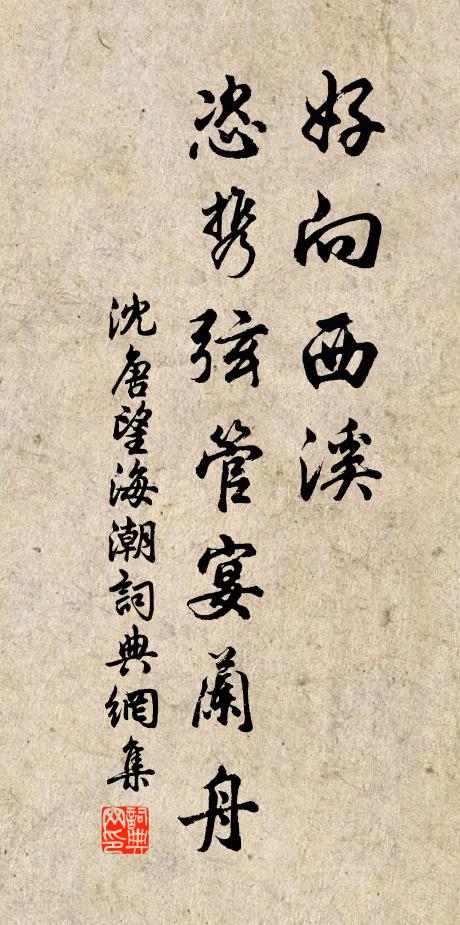 好向西溪
恣携弦管宴蘭舟
沈唐望海潮詞典網集
詞典网印